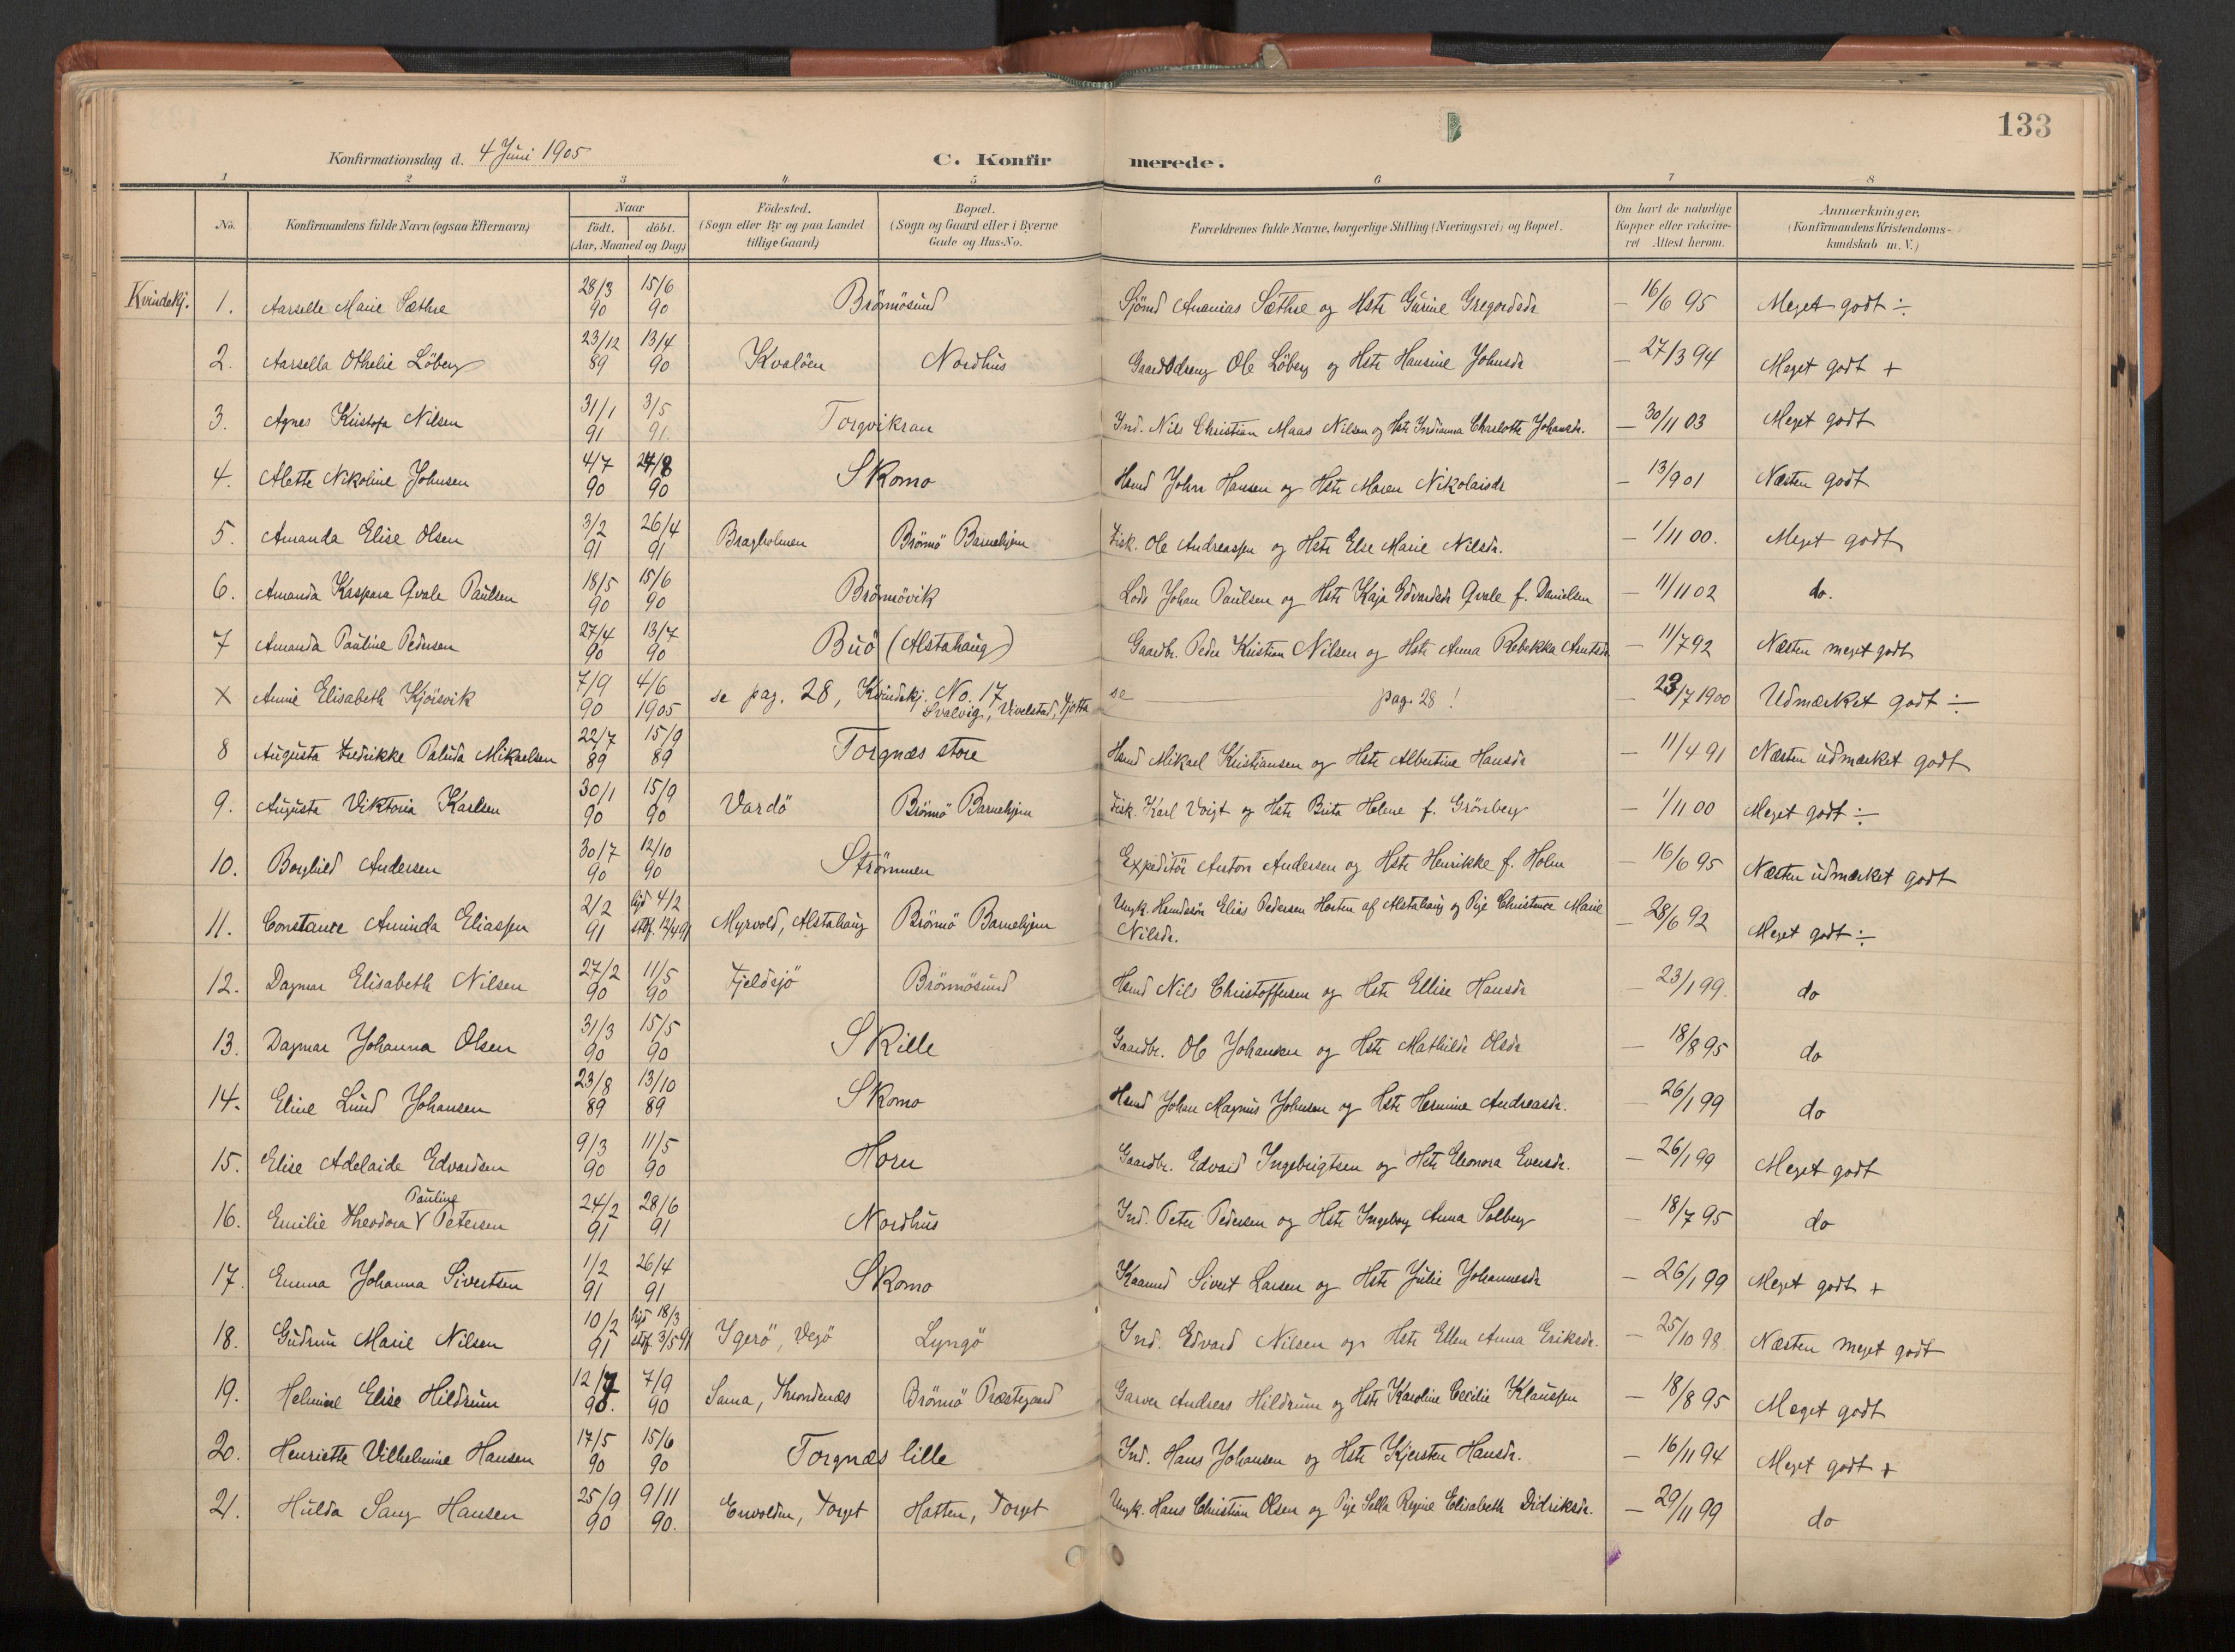 133
Konfirmationsdag d. 4 Juni 1905
C. Konfir merede.
1 2 3 4 5 6 7 8
No.
Konfirmandens fulde Navn (ogsaa Efternavn)
Naar
födt. döbt.
(Aar, Maaned og Dag)
Födested.
(Sogn eller By og paa Landet
tillige Gaard)
Bopæl.
(Sogn og Gaard eller i Byerne
Gade og Hus-No.
Forældrenes fulde Navne, borgerlige Stilling (Næringsvei) og Bopæl.
Om havt de naturlige
Kopper eller vakcine-
ret Attest herom.
Anmærkninger,
(Konfirmandens Kristendoms-
kundskab m. V.)
Kvindekj. 1. Aarselle Marie Sæthre 28/3 90 15/6 90 Brönnösund Sjömd Ananias Sæthre og Hstr Gurine Gregordsdr — 16/6 95 Meget godt ÷
2. Aarsella Othelie Löberg 23/12 89 13/4 90 Kvalöen Nordhus Gaarddreng Ole Löberg og Hstr Hansine Johnsdr — 27/3 94 Meget godt +
3. Agnes Kristofa Nilsen 31/1 91 3/5 91. Torgvikran Ind. Nils Christian Maas Nilsen og Hstr Indianna Charlotte Johansdr. — 30/11 03 Meget godt
4. Alette Nikoline Johnsen 4/7 90 24/8 90 Skomo Hsmd John Hansen og Hstr Maren Nikolaisdr — 13/9 01 Næsten godt
5. Amanda Elise Olsen 3/2 91 26/4 91 Bragholmen Brönnö Barnehjem Fisk. Ole Andreassen og Hstr Else Marie Nilsdr. — 1/11 00. Meget godt
6. Amanda Kaspara Qvale Paulsen 18/5 90 15/6 90 Brönnövik Lods Johan Paulsen og Hstr Kaja Edvardsdr Qvale f. Danielsen — 11/11 02 do.
7 Amanda Pauline Pedersen 27/4 90 13/7 90 Buö (Alstahaug) Gaardbr. Peder Kristian Nilsen og Hstr Anna Rebekka Arntsdr — 11/7 92 Næsten meget godt
X Annie Elisabeth Kjörsvik 7/9 90 4/6 1905 se pag. 28, Kvindekj. No. 17 se pag. 28 ! — 23/7 1900 Udmærket godt ÷
Svalvig, Vivelstad, Tjötta
8 Augusta Fredrikke Paluda Mikaelsen 22/7 89 15/9 89 Torgnæs store Hsmd Mikael Kristiansen og Hstr Albertine Hansdr — 11/4 91 Næsten udmærket godt
9. Augusta Viktoria Karlsen 30/1 90 15/9 90 Vardö Brönnö Barnehjem Fisk. Karl Voigt og Hstr Brita Helene f. Grönberg — 1/11 00 Meget godt ÷
10. Borghild Andersen 30/7 90 12/10 90 Strömmen Expeditör Anton Andersen og Hstr Henrikke f. Holm — 16/6 95 Næsten udmærket godt
11. Constance Aminda Eliassen 2/2 91 hjd 4/2 stdf. 12/4 91 Myrvold, Alstahaug Brönnö Barnehjem Ungk. Hsmdssön Elias Pedersen Horten af Alstahaug og Pige Christence Marie — 28/6 92 Meget godt ÷
Nilsdr.
12. Dagmar Elisabeth Nilsen 27/2 90 11/5 90 Fjeldsjö Brönnösund Hsmd Nils Christoffersen og Hstr Ellise Hansdr — 23/1 99. do
13. Dagmar Johanna Olsen 31/3 90 15/5 90 Skille Gaardbr. Ole Johansen og Hstr Mathilde Olsdr — 18/8 95 do
14. Eline Lund Johansen 23/8 89 13/10 89 Skomo Hsmd Johan Magnus Johnsen og Hstr Hermine Andreasdr. — 26/1 99 do
15. Elise Adelaide Edvardsen 9/3 90 11/5 90 Horn Gaardbr. Edvard Ingebrigtsen og Hstr Eleonora Eversdr. — 26/1 99 Meget godt
Pauline
16. Emilie Theodora V Petersen 24/2 91 28/6 91 Nordhus Ind. Peter Pedersen og Hstr Ingeborg Anna Solberg — 18/7 95 do
17. Emma Johanna Sivertsen 1/2 91 26/4 91 Skomo Kaarmd Sivert Larsen og Hstr Julie Johannesdr — 26/1 99 Meget godt +
18. Gudrun Marie Nilsen 10/2 91 hjd 18/3 stdf. 3/5 91 Ygerö, Vegö Lyngö Ind. Edvard Nilsen og Hstr Ellen Anna Eriksdr. — 25/10 98. Næsten meget godt
19. Helmine Elise Hildrum 12/7 90. 7/9 90 Sama, Throndenæs Brönnö Præstegaard Garver Andreas Hildrum og Hstr Karoline Cecilie Klaussen — 18/8 95 Meget godt
20. Henriette Vilhelmine Hansen 17/5 90 15/6 90 Torgnæs lille Ind. Hans Johansen og Hstr Kjersten Hansdr. — 16/11 94 Meget godt +
21. Hulda Sang Hansen 25/9 90 9/11 90. Envolden, Torget Hatten, Torget Ungk. Hans Christian Olsen og Pige Sella Regine Elisabeth Didriksdr. — 29/11 99 do